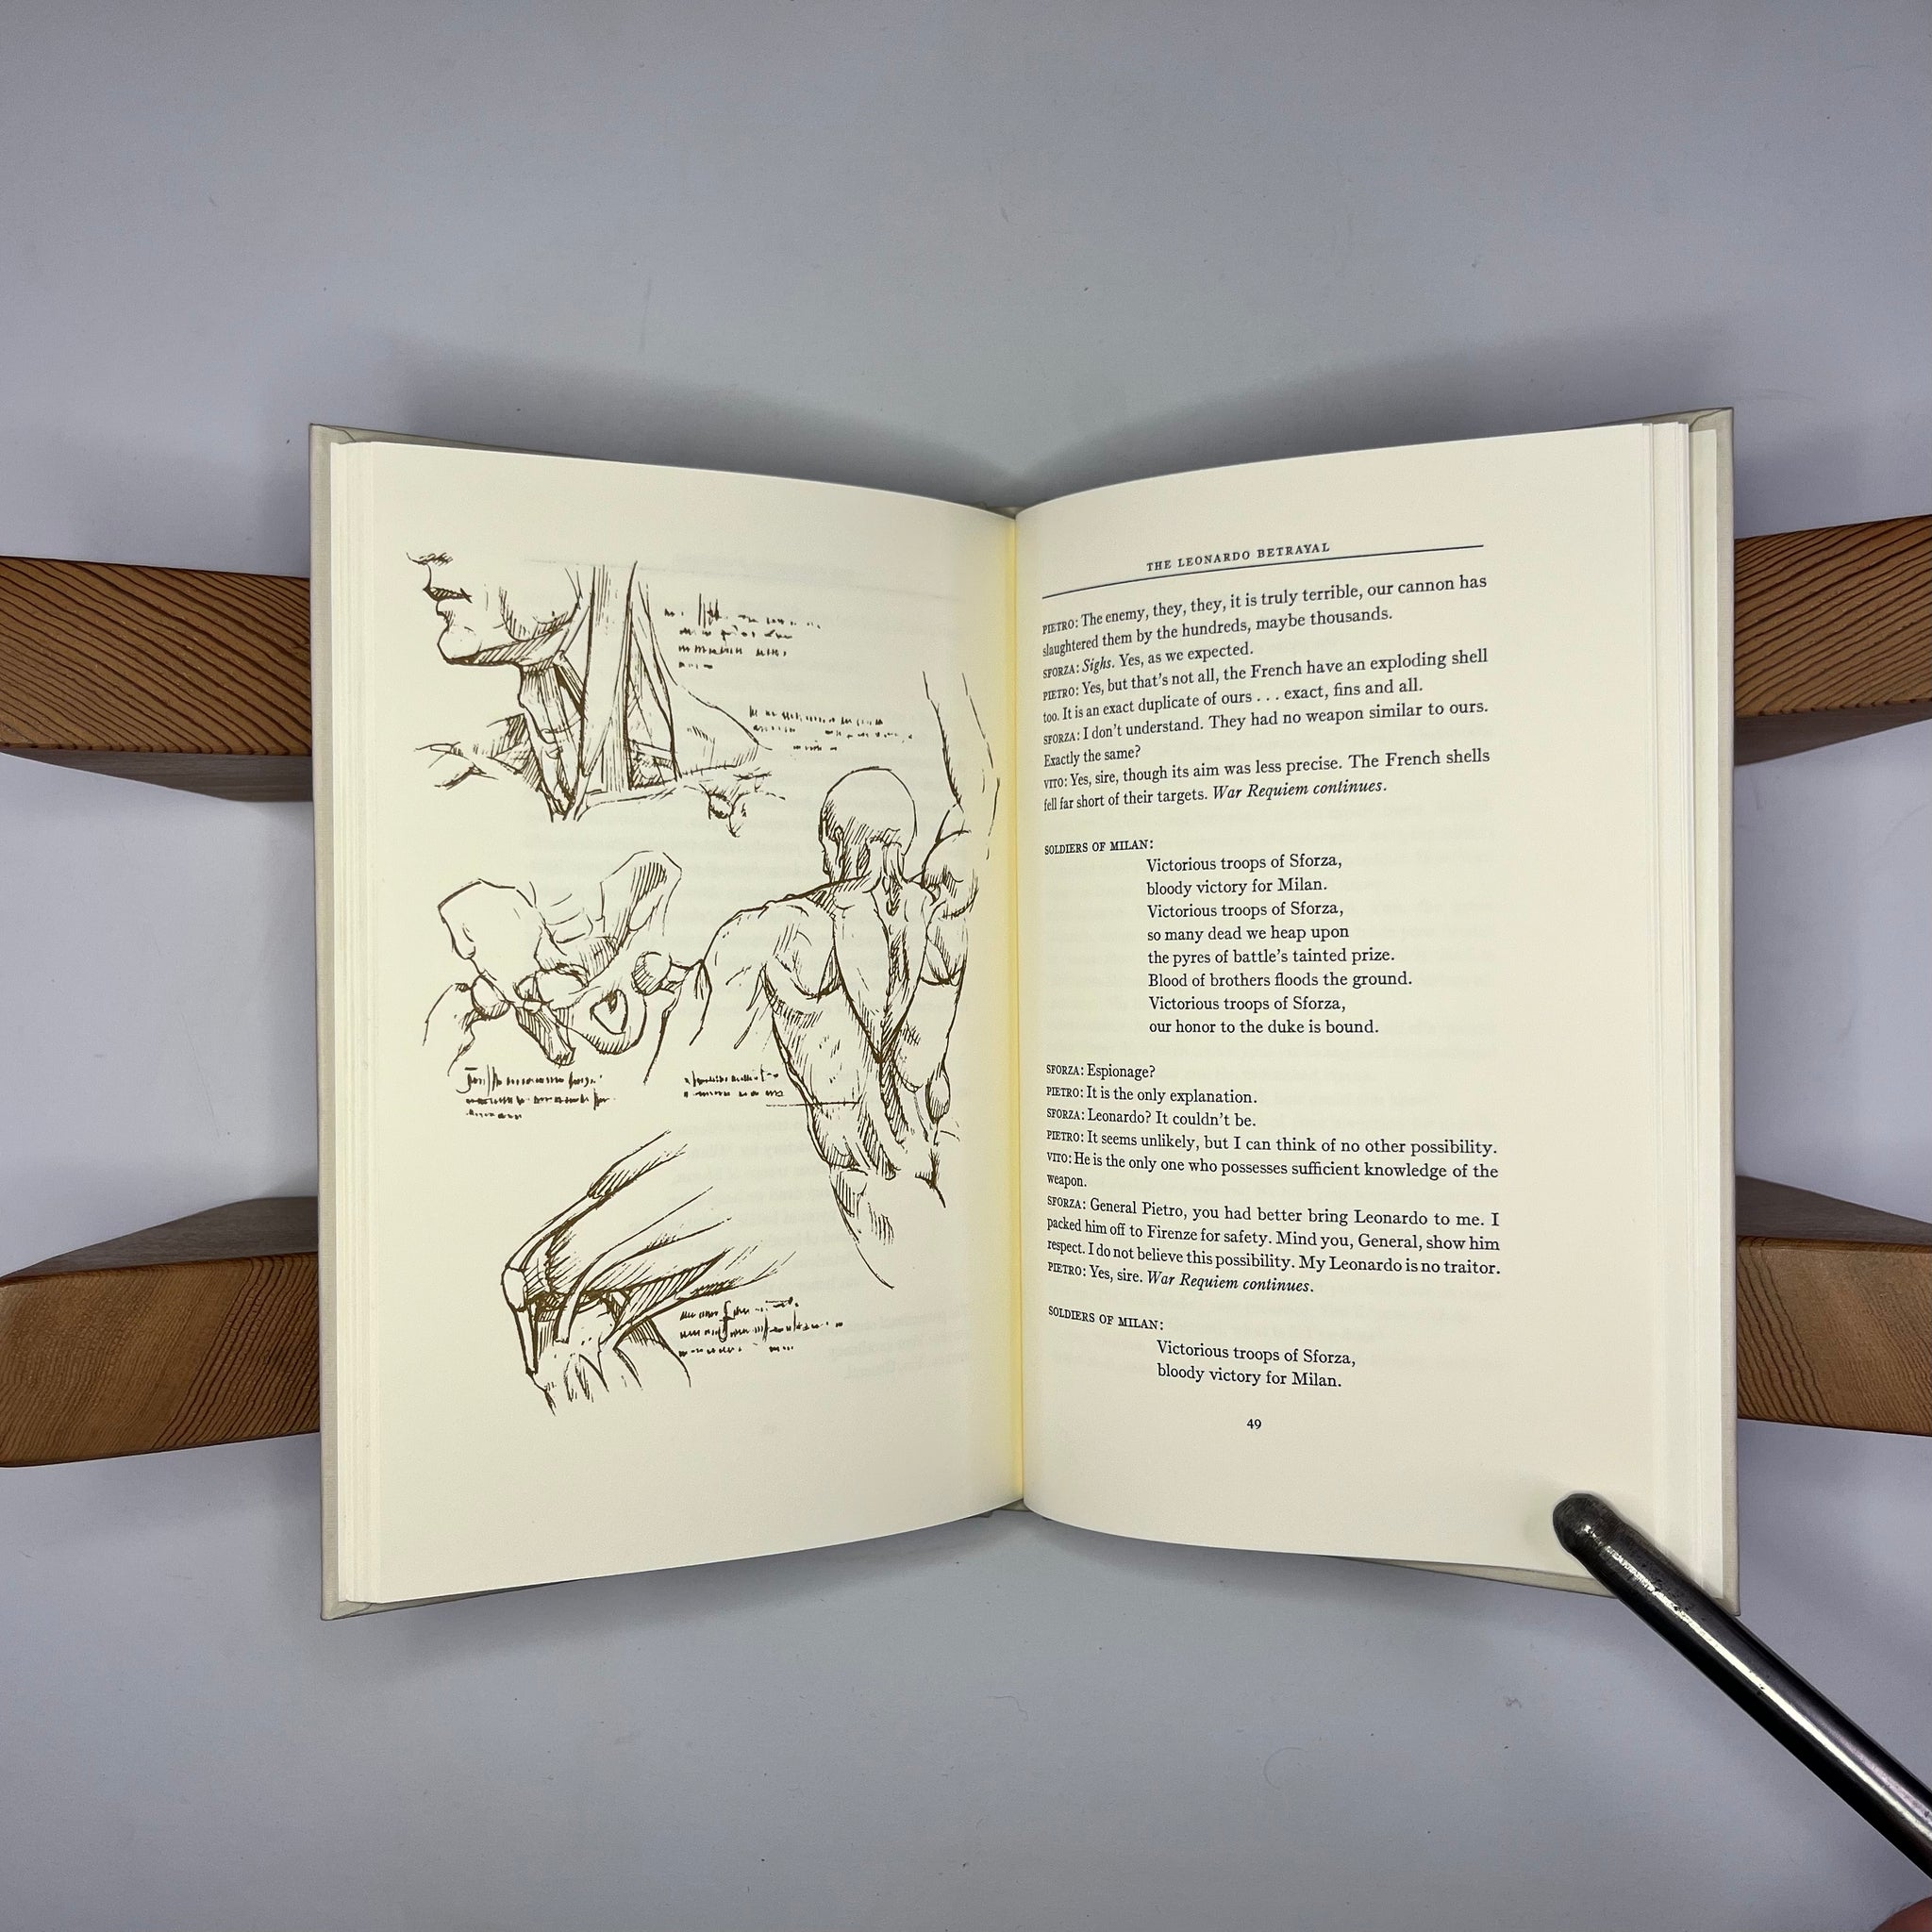 THE LEONARDO BETRAYAL
PIETRO: The enemy, they, they, it is truly terrible, our cannon has
slaughtered them by the hundreds, maybe thousands.
SFORZA: Sighs. Yes, as we expected.
PIETRO: Yes, but that's not all, the French have an exploding shell
too. It is an exact duplicate of ours . . . exact, fins and all.
SFORZA: I don't understand. They had no weapon similar to ours.
Exactly the same?
VITO: Yes, sire, though its aim was less precise. The French shells
fell far short of their targets. War Requiem continues.
SOLDIERS OF MILAN:
Victorious troops of Sforza,
bloody victory for Milan.
Victorious troops of Sforza,
so many dead we heap upon
the pyres of battle's tainted prize.
Blood of brothers floods the ground.
Victorious troops of Sforza,
our honor to the duke is bound.
SFORZA: Espionage?
PIETRO: It is the only explanation.
SFORZA: Leonardo? It couldn't be.
PIETRO: It seems unlikely, but I can think of no other possibility.
VITO: He is the only one who possesses sufficient knowledge of the
weapon.
SFORZA: General Pietro, you had better bring Leonardo to me. I
packed him off to Firenze for safety. Mind you, General, show him
respect. I do not believe this possibility. My Leonardo is no traitor.
PIETRO: Yes, sire. War Requiem continues.
SOLDIERS OF MILAN:
Victorious troops of Sforza,
bloody victory for Milan.
49